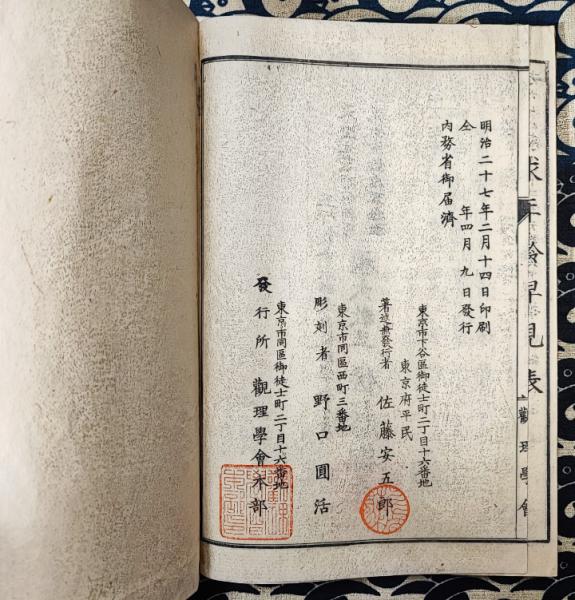 明治二十七年二月十四日印刷
仝 年四月 九日發行
內務省御届濟
東京市下谷區御徒士町二丁目十六番地
東京府平民
著述兼發行者 佐藤安五郎
東京市同區西町三番地
彫刻者 野口圓活
東京市同區御徒士町二丁目十六番地
發行所 觀理學會本部
求年齡早見表
觀理學會